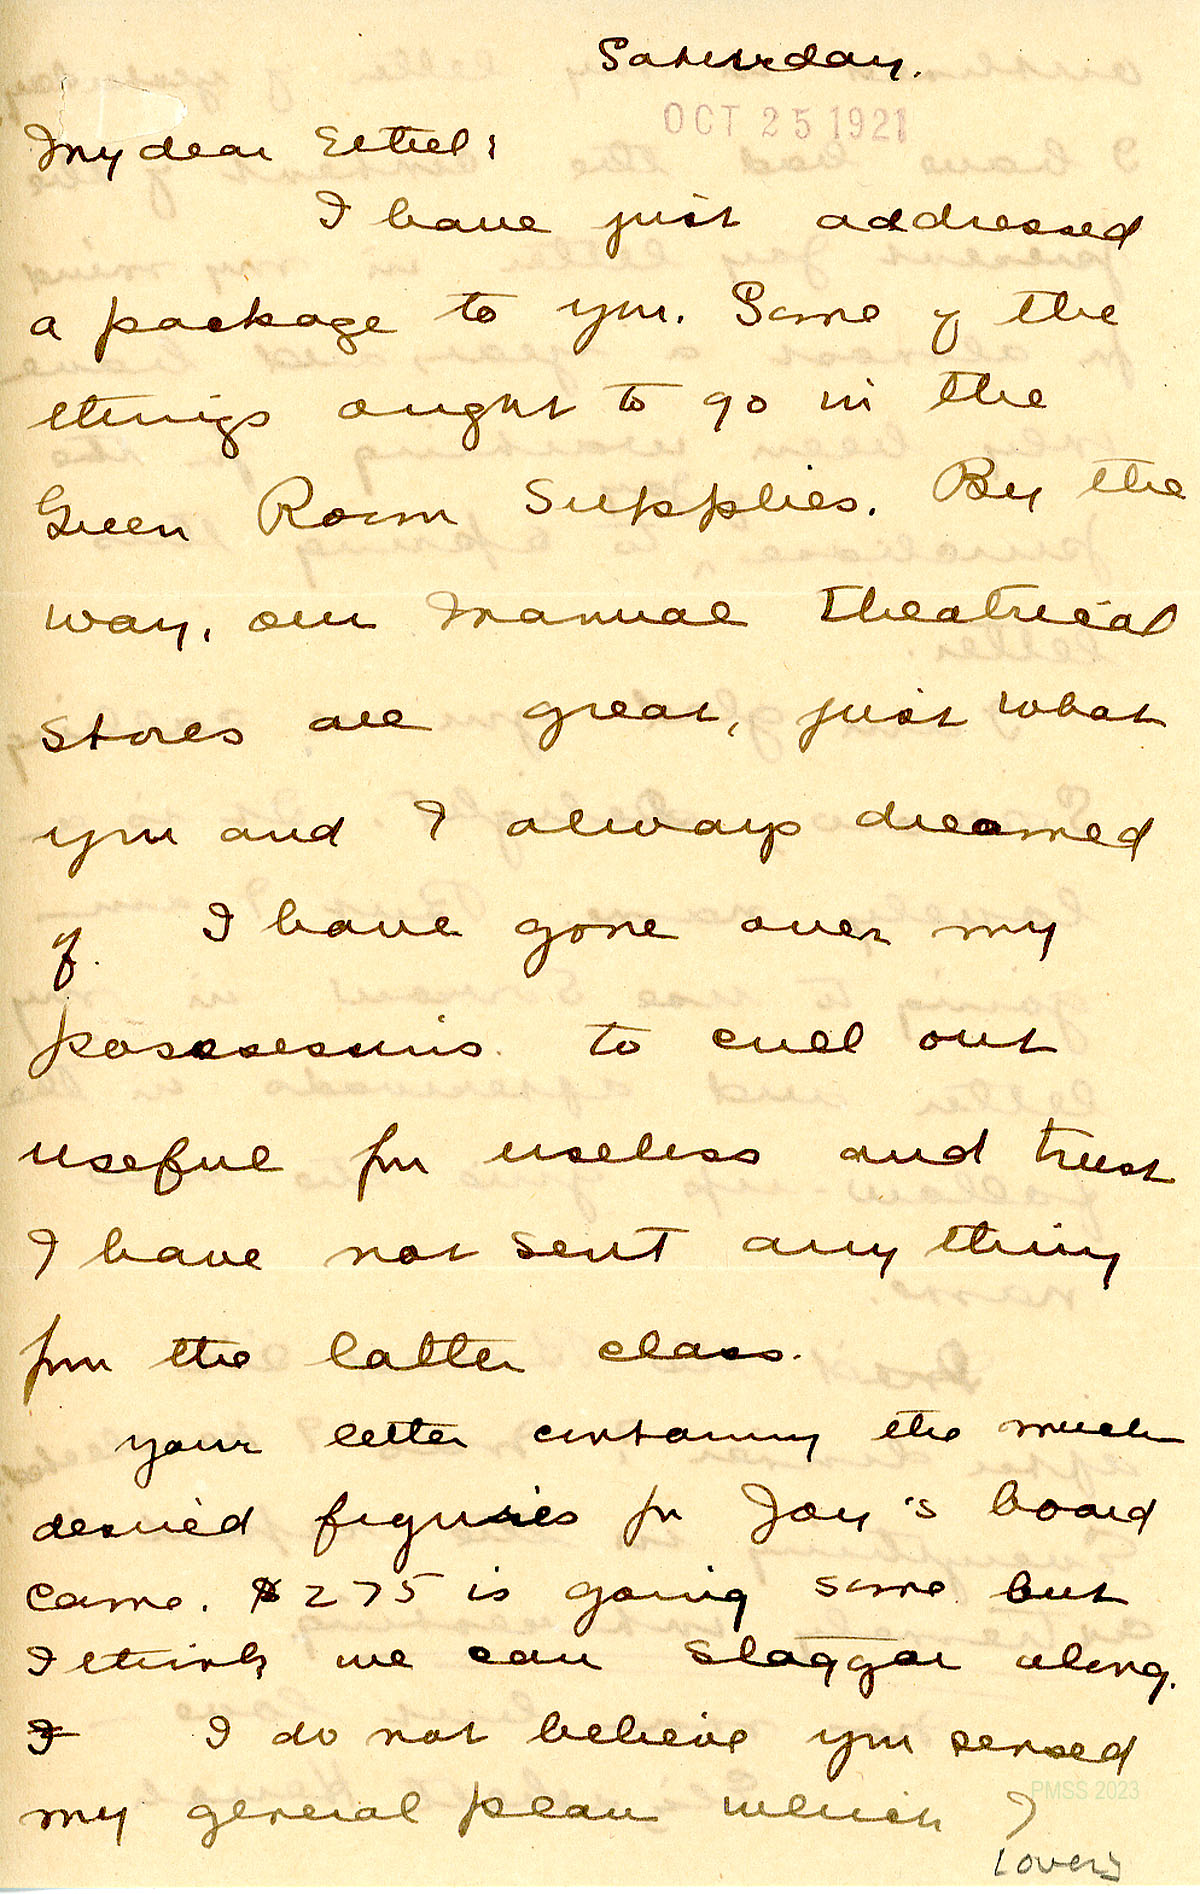 Saturday.
OCT 25 1921
My dear Ethel:
I have just addressed
a package to you. Some of the
things ought to go in the
Green Room Supplies. By the
way, our Manual Theatrical
stores are great, just what
you and I always dreamed
of. I have gone over my
possessions to cull out
useful from useless and trust
I have not sent anything
from the latter class.
Your letter containing the much
desired figures for Joy's board
came. $275 is going some but
I think we can staggar along.
I I do not believe you sensed
my general plan which I
PMSS 2023
(over)